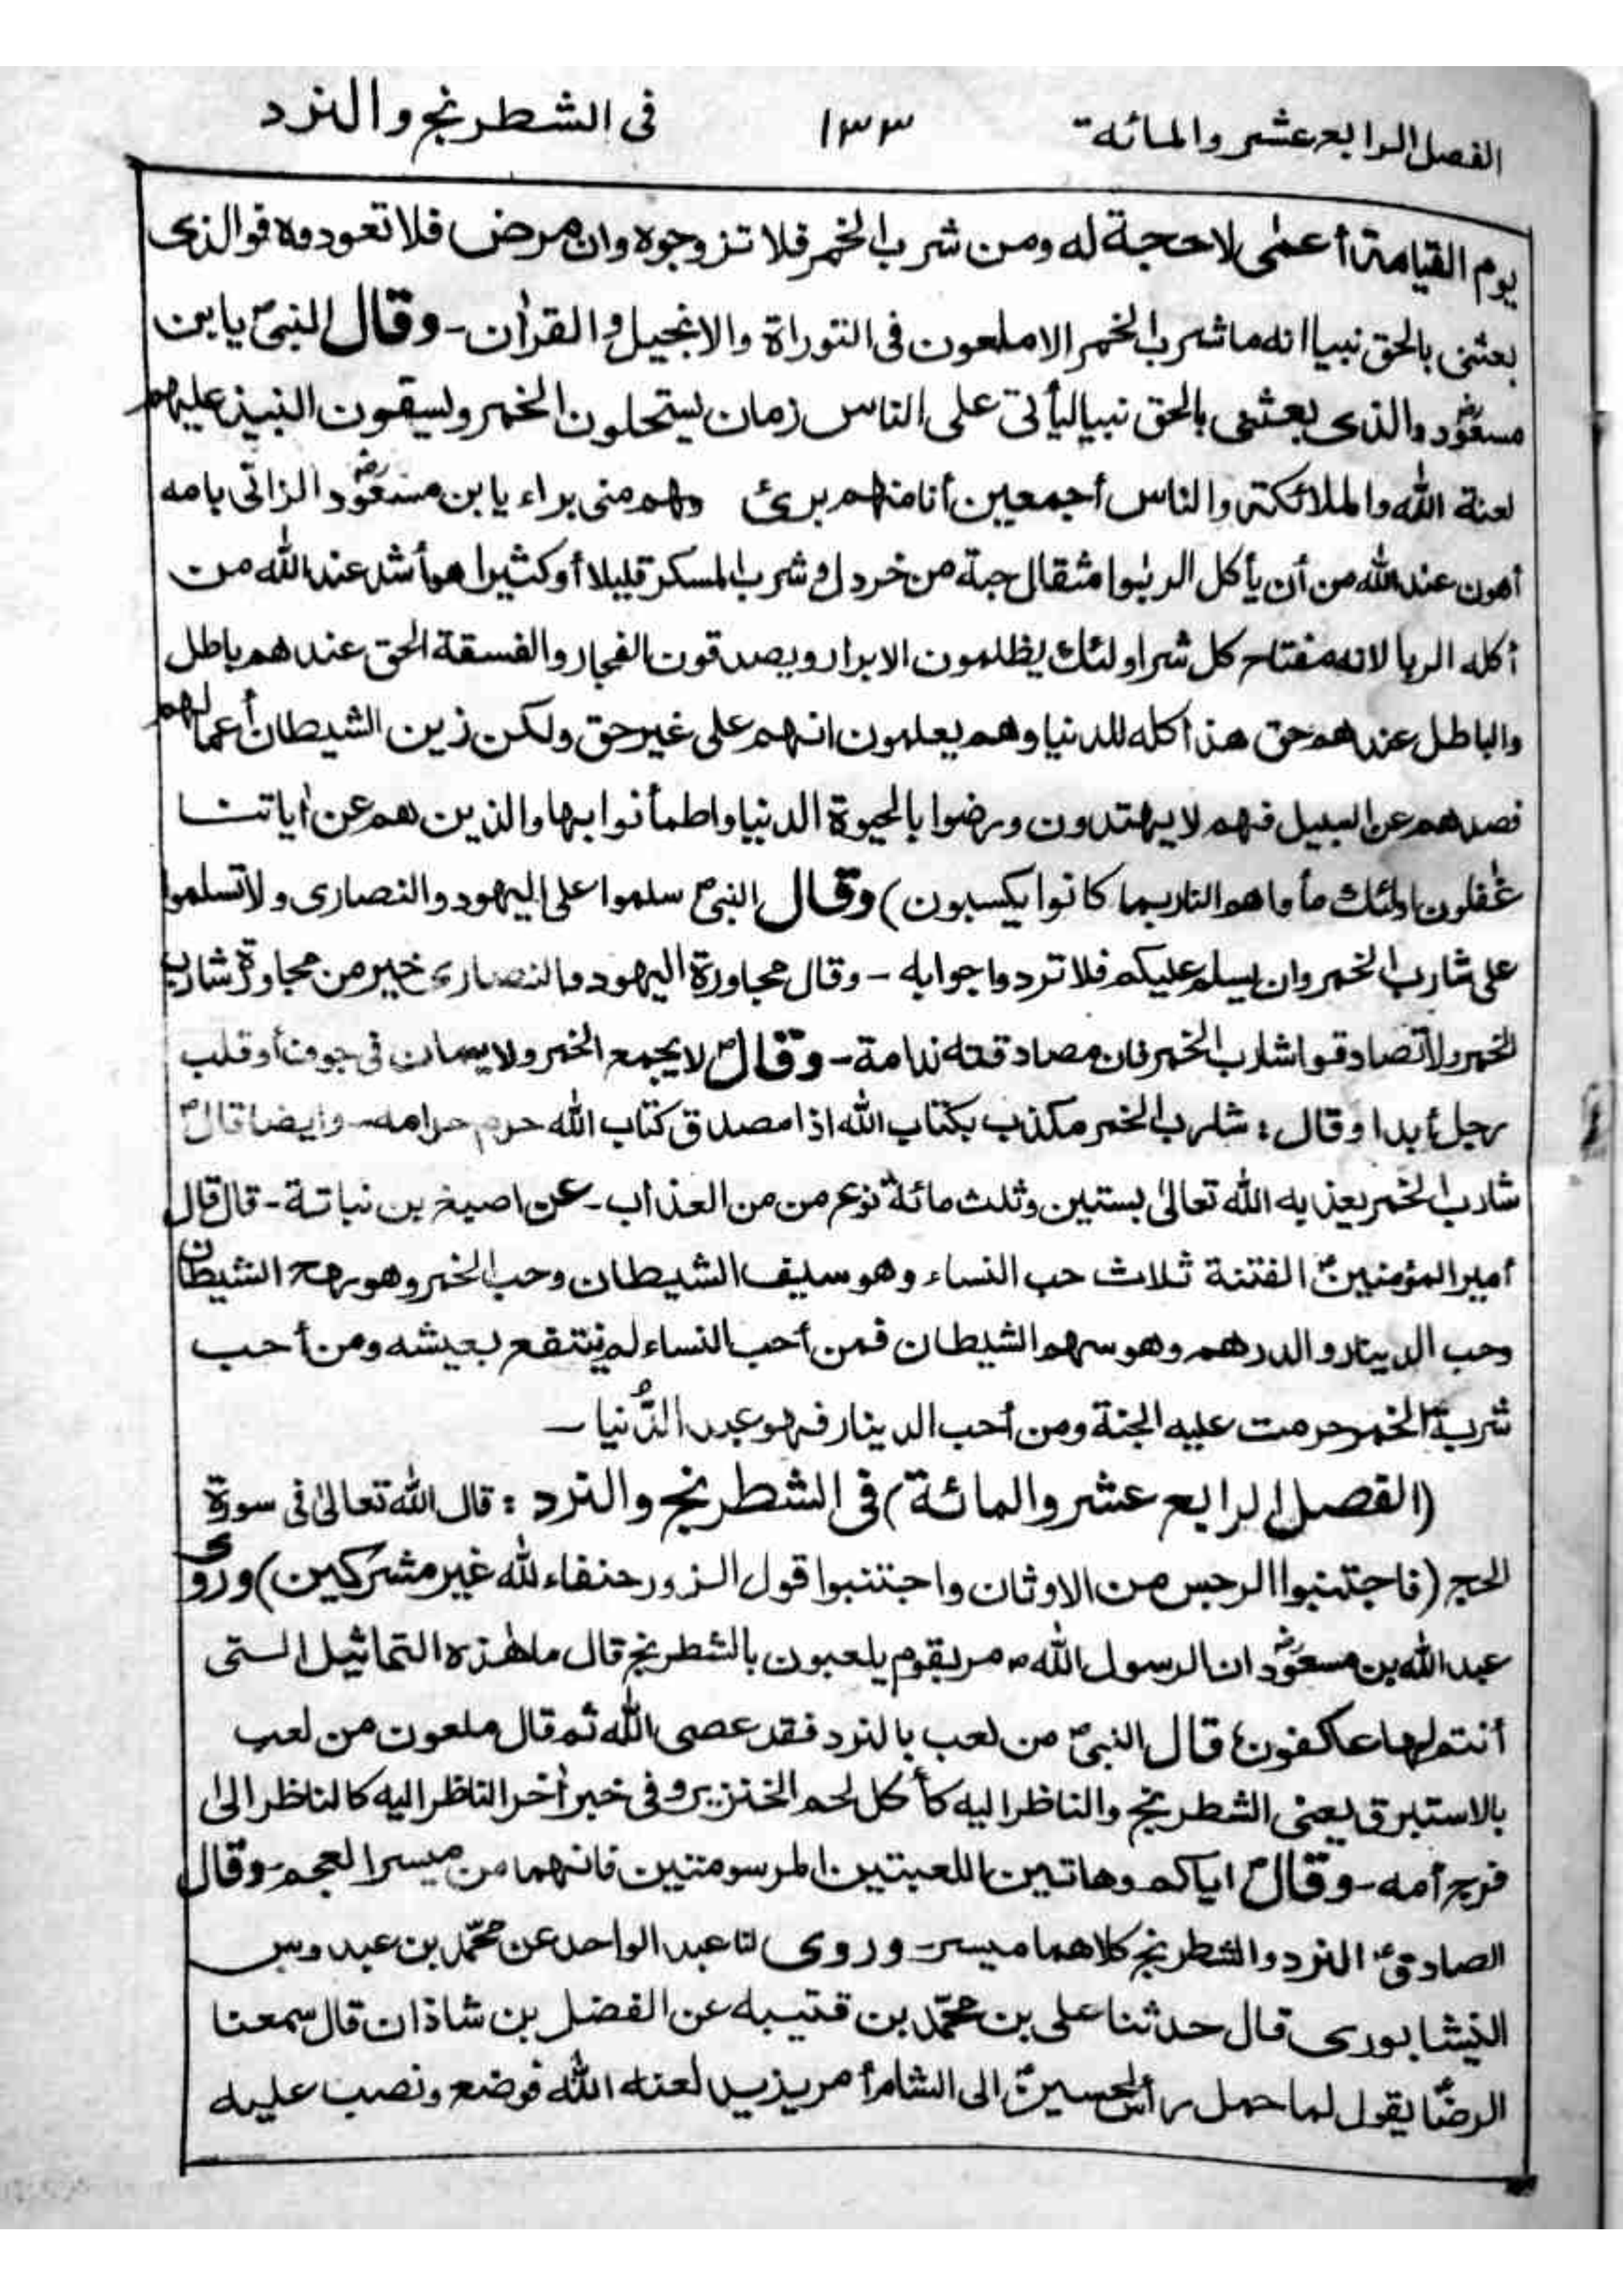 الفصل الرابع عشر والمائة ١٣٣ فى الشطرنج والنرد
يوم القيامة أعمى لا حجة له ومن شرب الخمر فلا تزوجوه وان مرض فلا تعودوه فوالذى
بعثنى بالحق نبيا انه ما شرب الخمر الا ملعون فى التوراة والانجيل و القرآن - وقال النبىؐ يا بن
مسعودؓ والذى بعثنى بالحق نبيا ليأتى على الناس زمان يستحلون الخمر ويسقون النبيذ عليهم
لعنة الله والملائكة والناس أجمعين أنا منهم برئ وهم منى براء يا بن مسعودؓ الزانى بامه
أهون عند الله من أن يأكل الربوا مثقال حبة من خردل و شرب المسكر قليلا أو كثيرا هو أشد عند الله من
أكله الربا لانه مفتاح كل شر اولئك يظلمون الابرار ويصدقون الفجار والفسقة الحق عندهم باطل
والباطل عندهم حق هذا كله للدنيا وهم يعلمون انهم على غير حق ولكن زين الشيطان أعمالهم
فصدهم عن السبيل فهم لا يهتدون ورضوا بالحيوة الدنيا واطمأنوا بها والذين هم عن اٰياتنا
غٰفلون اولئك مأواهم النار بما كانوا يكسبون) وقال النبىؐ سلموا على اليهود والنصارى ولا تسلموا
على شارب الخمر وان يسلم عليكم فلا تردوا جوابه - وقال مجاورة اليهود والنصارى خير من مجاورة شارب
الخمر ولا تصادقوا شارب الخمر فان مصادقته ندامة - وقالؐ لا يجمع الخمر ولا يمان فى جوف أو قلب
رجل أبدا وقال: شارب الخمر مكذب بكتاب الله اذا مصدق كتاب الله حرم حرامه - وايضا قالؐ
شارب الخمر يعذبه الله تعالىٰ بستين وثلث مائة نوع من من العذاب - عن اصبغ بن نباتة - قال قال
أمير المؤمنينؑ الفتنة ثلاث حب النساء وهو سيف الشيطان وحب الخمر وهو رمح الشيطان
وحب الدينار والدرهم وهو سهم الشيطان فمن أحب النساء لم ينتفع بعيشه ومن أحب
شربة الخمر حرمت عليه الجنة ومن أحب الدينار فهو عبد الدُّنيا -
(الفصل الرابع عشر والمائة) فى الشطرنج والنرد: قال الله تعالىٰ فى سورة
الحج (فاجتنبوا الرجس من الاوثان واجتنبوا قول الزور حنفاء لله غير مشركين) وروى
عبد الله بن مسعودؓ ان الرسول اللهؐ مر بقوم يلعبون بالشطرنج قال ما هٰذه التماثيل التى
أنتم لها عاكفون، قال النبىؐ من لعب بالنرد فقد عصى الله ثم قال ملعون من لعب
بالاستبرق يعنى الشطرنج والناظر اليه كأكل لحم الخنزير وفى خبر اٰخر الناظر اليه كالناظر الى
فرج أمه - وقالؐ اياكم وهاتين اللعبتين المرسومتين فانهما من ميسر العجم - وقال
الصادقؑ النرد والشطرنج كلاهما ميسر - وروى لنا عبد الواحد عن محمّد بن عبدوس
النيشابورى قال حدثنا على بن محمّد بن قتيبه عن الفضل بن شاذان قال سمعنا
الرضاؑ يقول لما حمل رأس الحسينؑ الى الشام أمر يزيد لعنه الله فوضع ونصب عليه